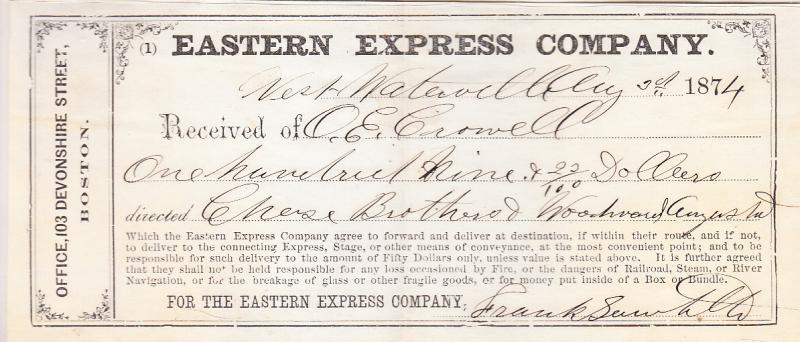 (1) EASTERN EXPRESS COMPANY.
OFFICE, 103 DEVONSHIRE STREET,
BOSTON.
West Waterville Aug 3d 1874
Received of O. E. Crowell
One hundred Nine & 22/100 Dollars
directed Chase Brothers & Woodward Augusta
Which the Eastern Express Company agree to forward and deliver at destination, if within their route, and if not,
to deliver to the connecting Express, Stage, or other means of conveyance, at the most convenient point; and to be
responsible for such delivery to the amount of Fifty Dollars only, unless value is stated above. It is further agreed
that they shall not be held responsible for any loss occasioned by Fire, or the dangers of Railroad, Steam, or River
Navigation, or for the breakage of glass or other fragile goods, or for money put inside of a Box or Bundle.
FOR THE EASTERN EXPRESS COMPANY,
Frank